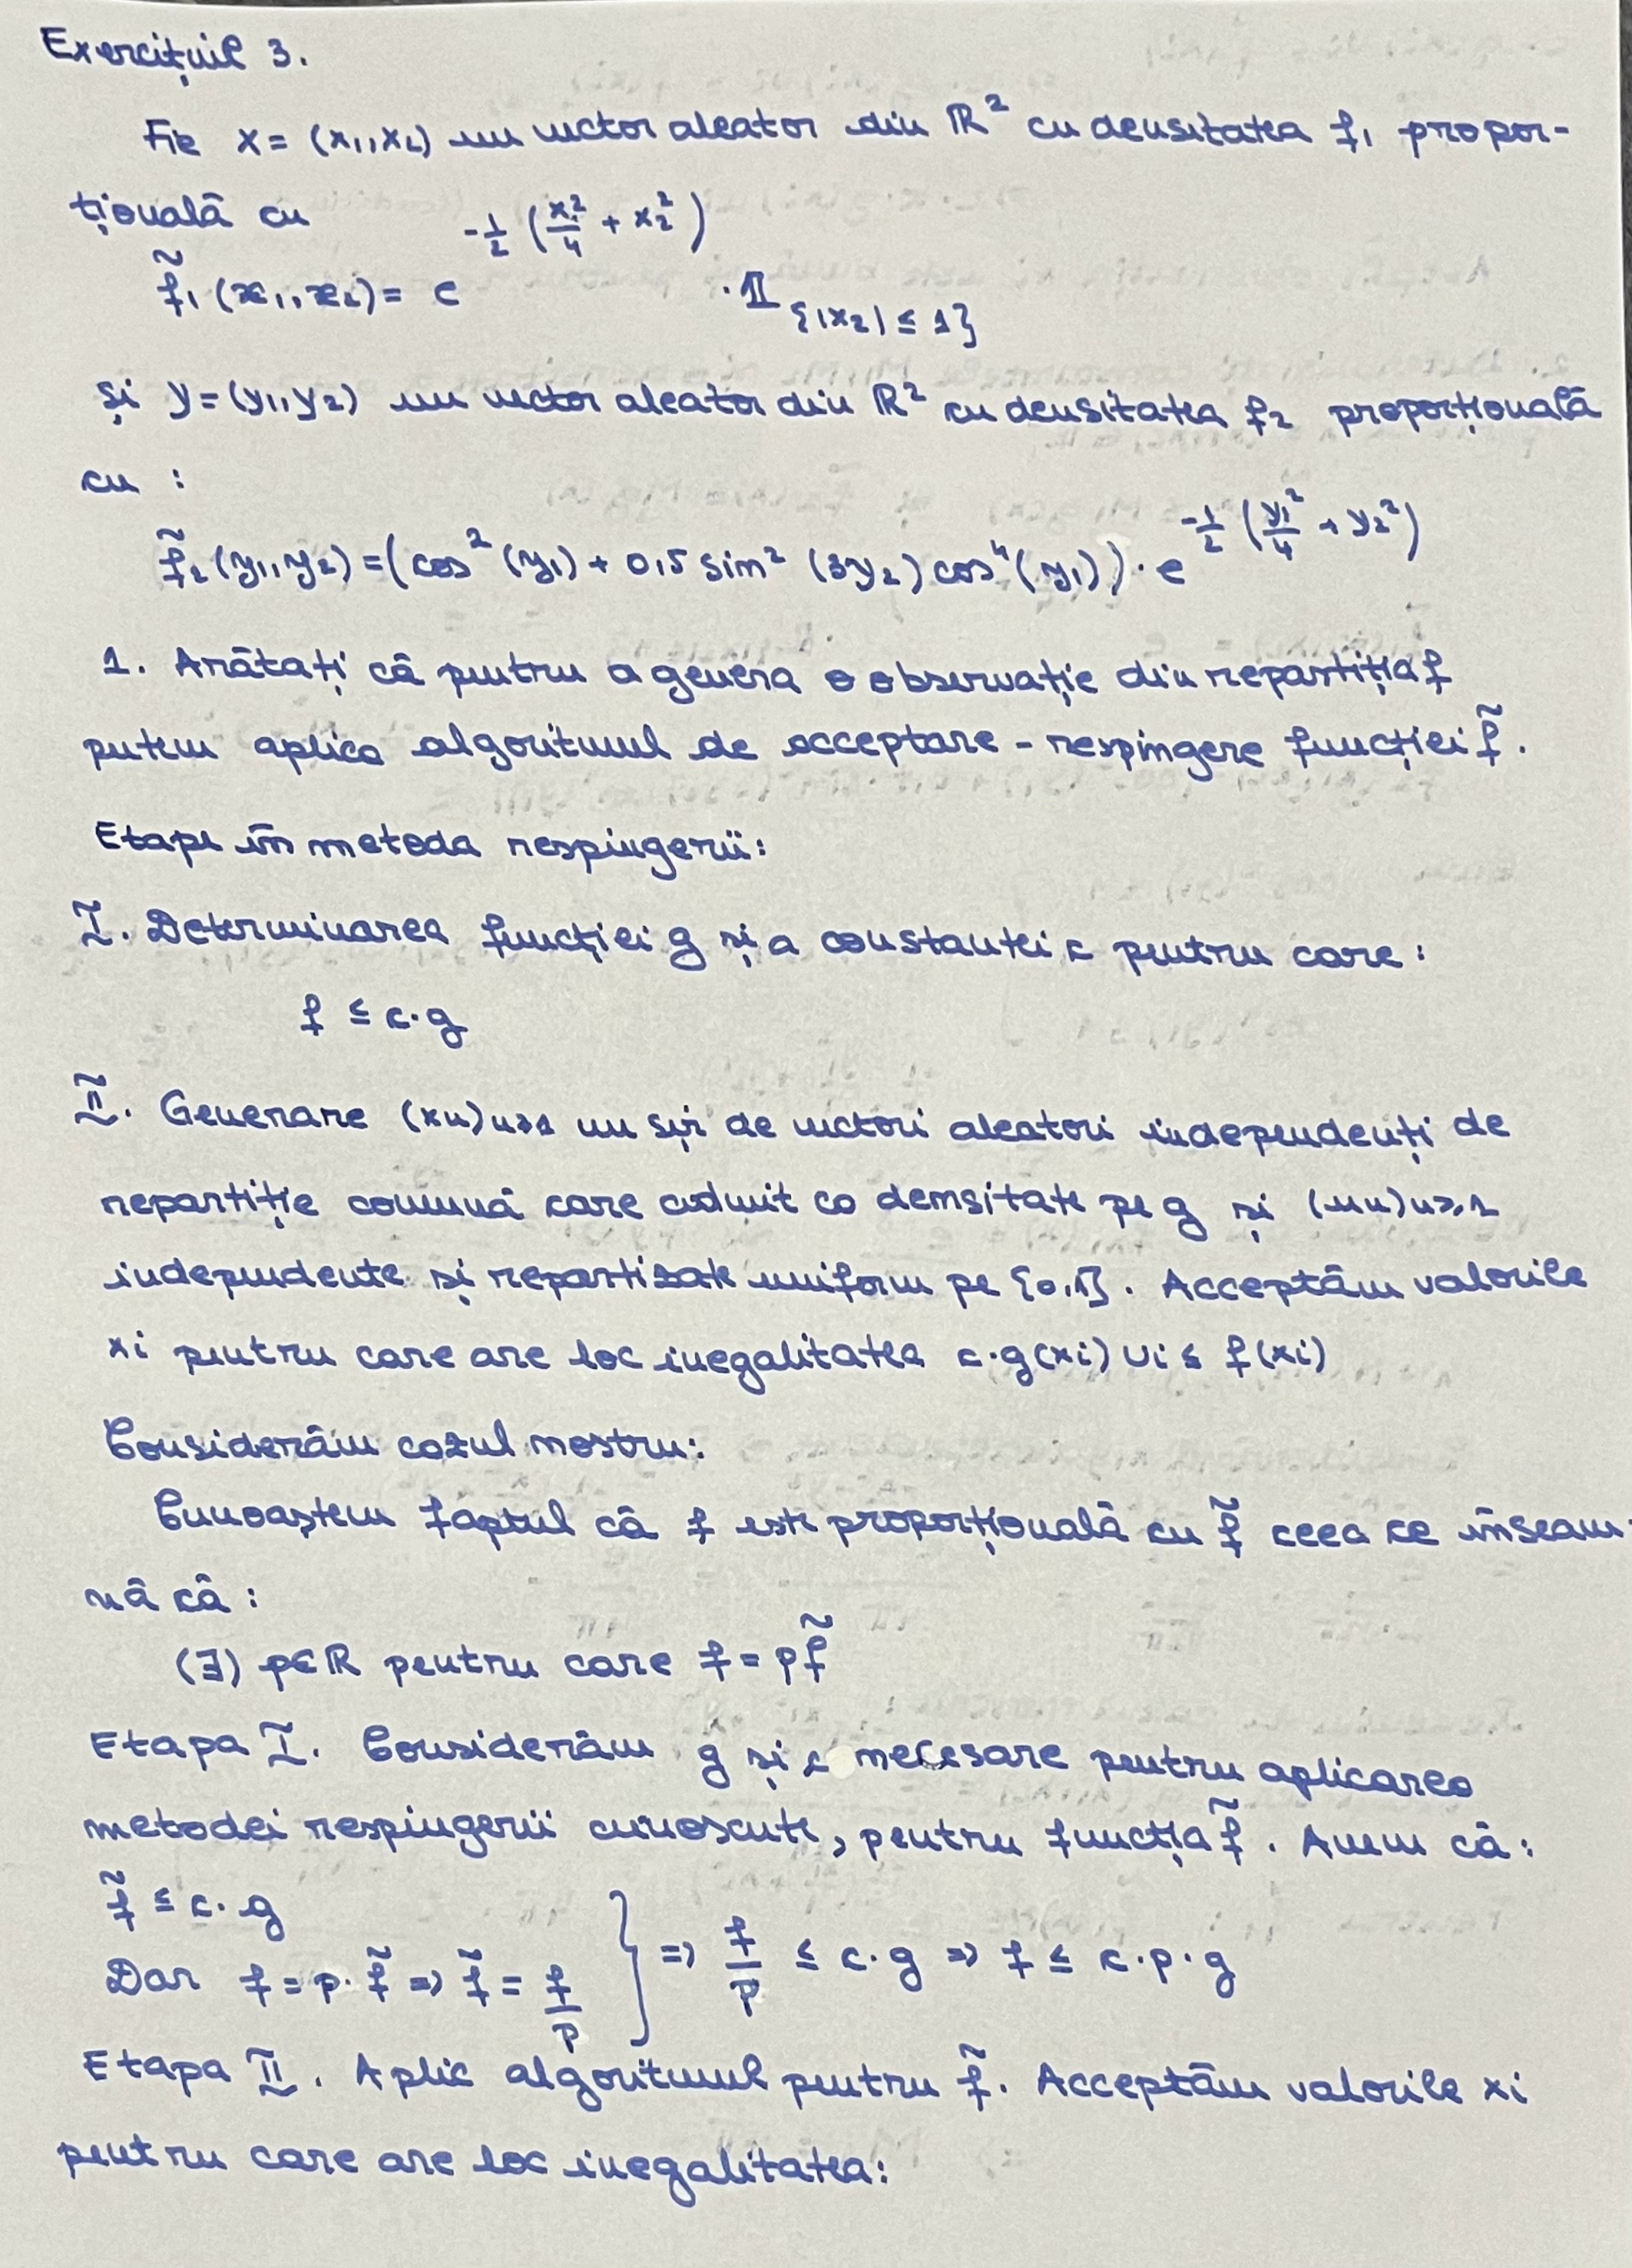 Exercițiul 3.
Fie x = (x₁,x₂) un vector aleator din ℝ² cu densitatea f₁ propor-
țională cu
f̃₁(x₁,x₂) = e^{-1/2 (x₁²/4 + x₂²)} · 𝟙_{{|x₂| ≤ 1}}
și y = (y₁,y₂) un vector aleator din ℝ² cu densitatea f₂ proporțională
cu :
f̃₂(y₁,y₂) = (cos²(y₁) + 0,5 sin²(3y₂) cos⁴(y₁)) · e^{-1/2 (y₁²/4 + y₂²)}
1. Arătați că pentru a genera o observație din repartiția f
putem aplica algoritmul de acceptare - respingere funcției f̃.
Etape în metoda respingerii:
I. Determinarea funcției g și a constantei c pentru care:
f ≤ c·g
II. Generare (xn)n≥1 un șir de vectori aleatori independenți de
repartiție comună care admit ca densitate pe g și (un)n≥1
independente și repartizate uniform pe [0,1]. Acceptăm valorile
xi pentru care are loc inegalitatea c·g(xi) Ui ≤ f(xi)
Considerăm cazul nostru:
Cunoaștem faptul că f este proporțională cu f̃ ceea ce înseam-
nă că :
(∃) p∈ℝ pentru care f = pf̃
Etapa I. Considerăm g și c necesare pentru aplicarea
metodei respingerii cunoscute, pentru funcția f̃. Avem că:
f̃ ≤ c·g
Dar f = p·f̃ => f̃ = f/p } => f/p ≤ c·g => f ≤ c·p·g
Etapa II. Aplic algoritmul pentru f̃. Acceptăm valorile xi
pentru care are loc inegalitatea: